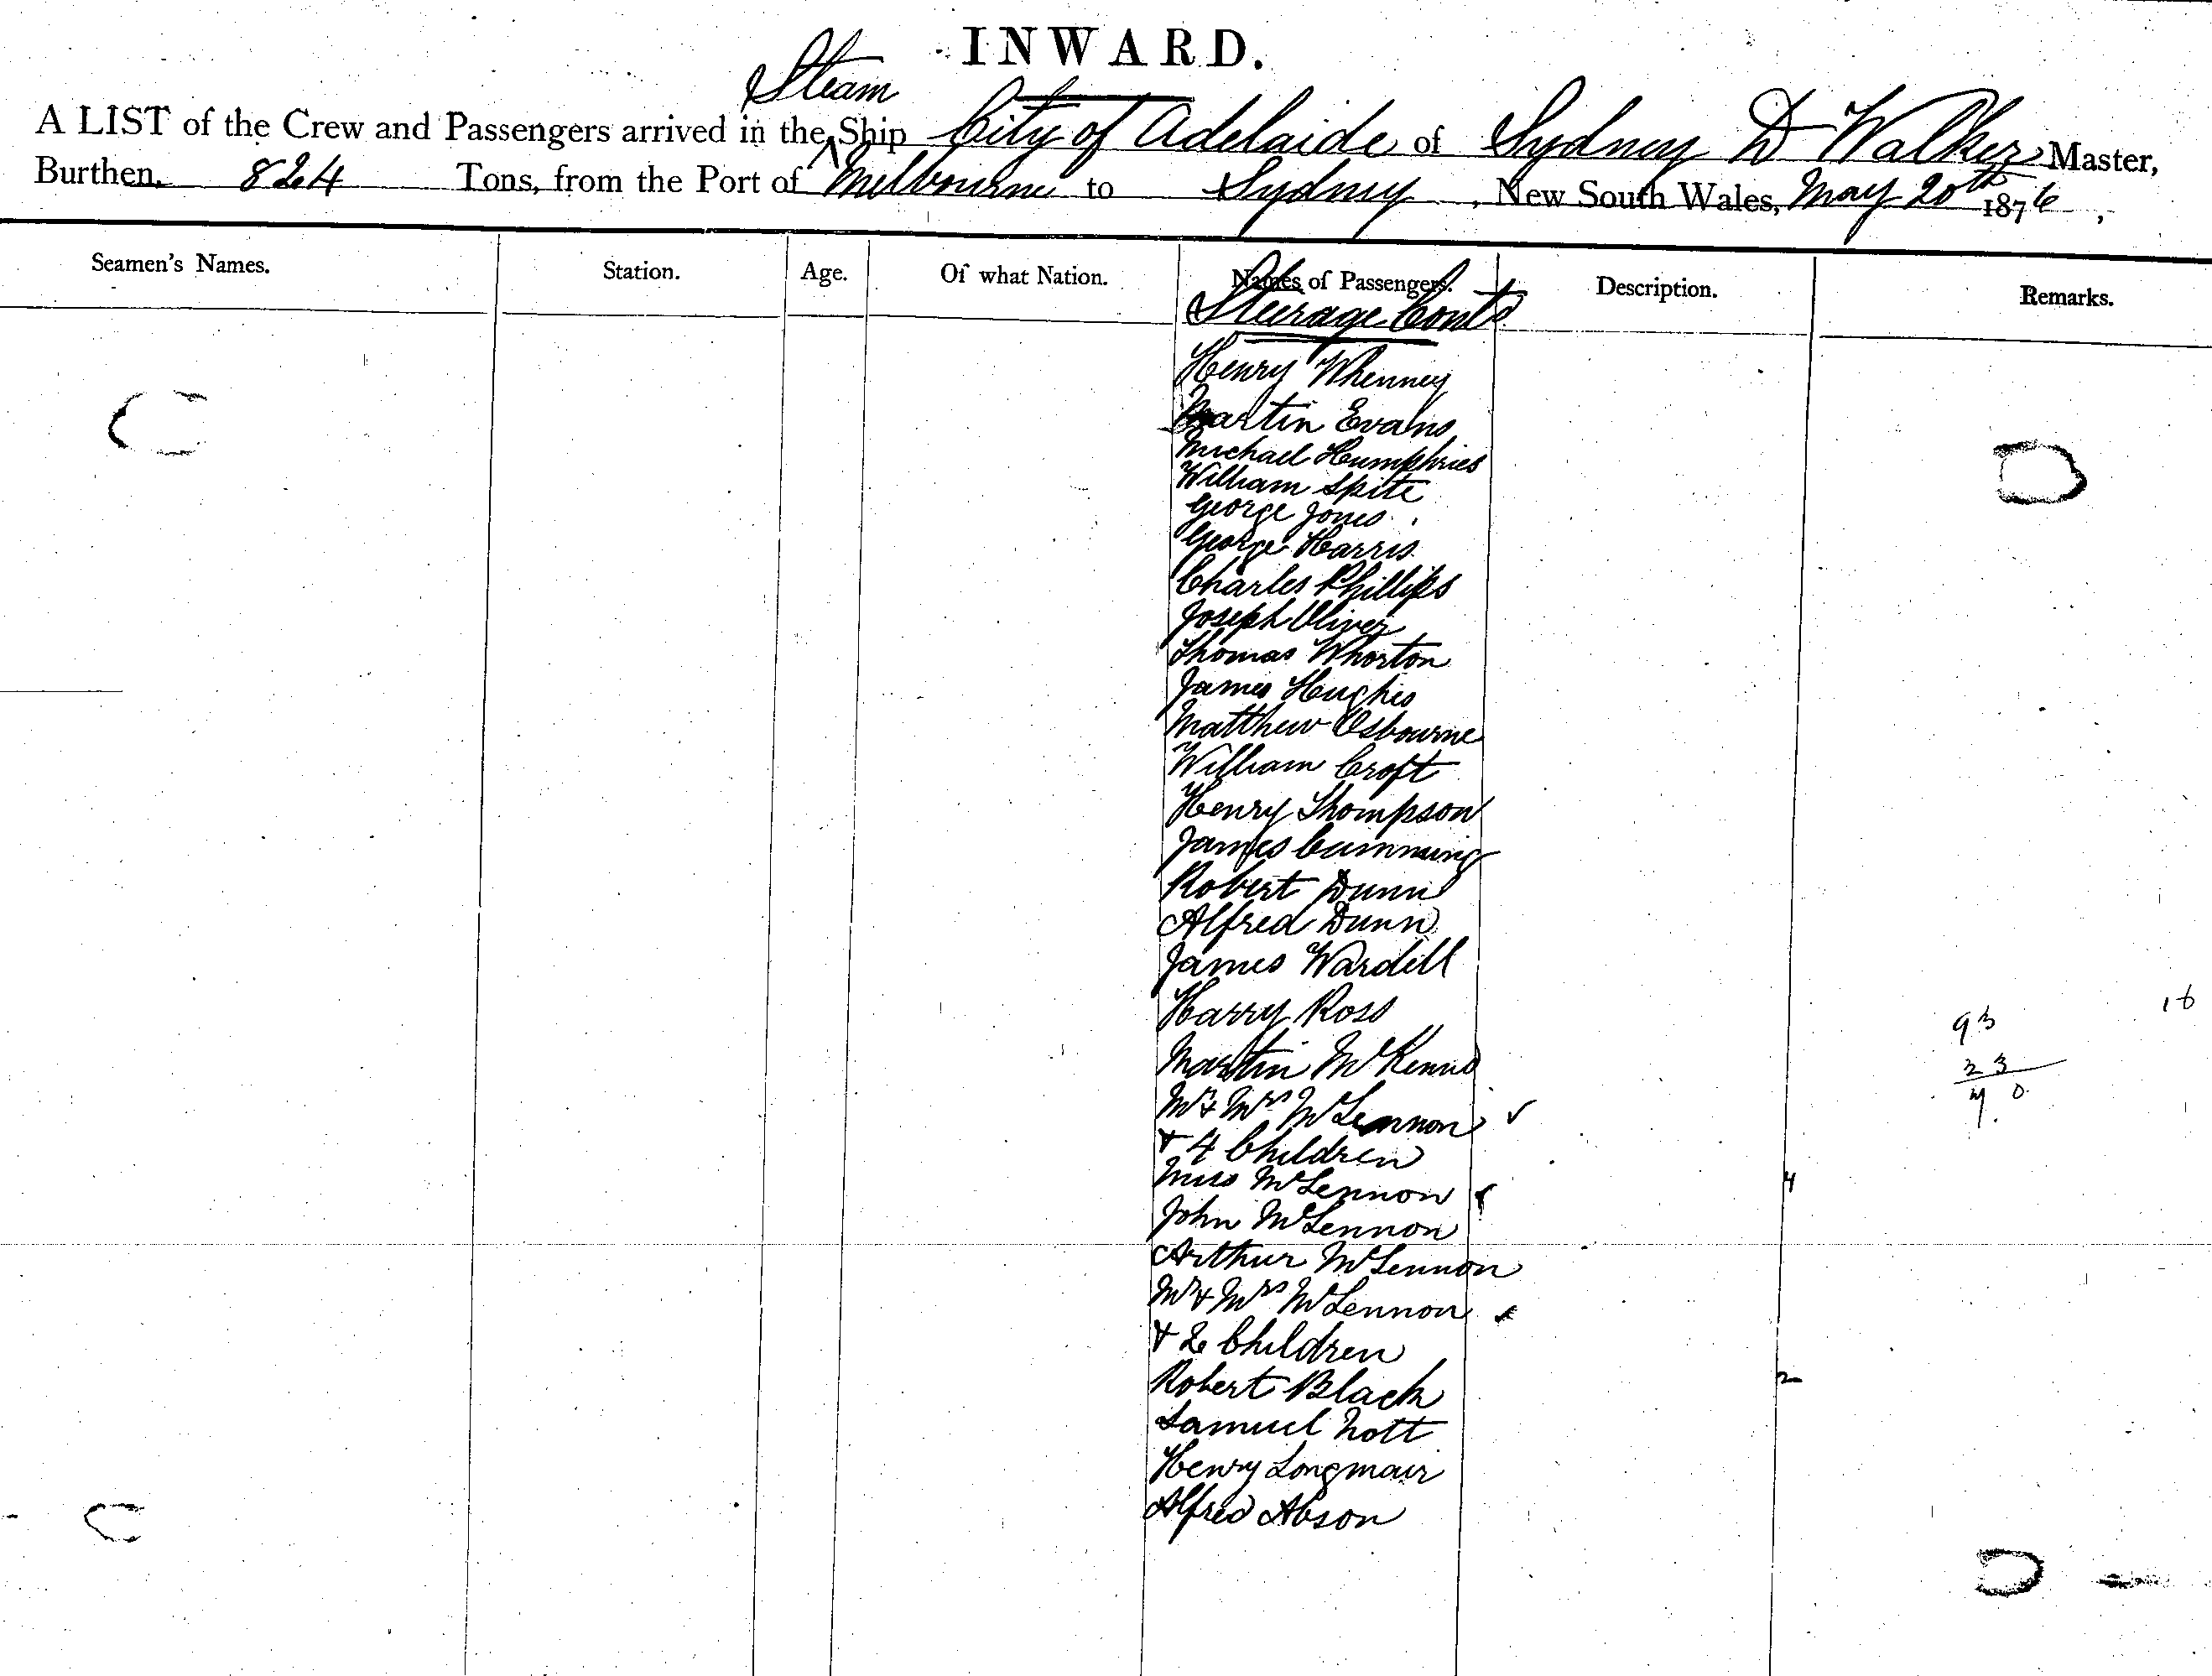 INWARD.
Steam
A LIST of the Crew and Passengers arrived in the ^ Ship City of Adelaide of Sydney D Walker Master,
Burthen, 824 Tons, from the Port of Melbourne to Sydney, New South Wales, May 20th 1876,
Seamen's Names. Station. Age. Of what Nation. Names of Passengers. Description. Remarks.
Steerage Contd
Henry Whenney
Martin Evans
Michael Humphries
William Spite
George Jones
George Harris
Charles Phillips
Joseph Oliver
Thomas Whorton
James Hughes
Matthew Osbourne
William Croft
Henry Thompson
James Cumming
Robert Dunn
Alfred Dunn
James Wardell
Harry Ross
Martin McKenna
Mr & Mrs McLennon
& 4 Children
Miss McLennon
4
John McLennon
Arthur McLennon
Mr & Mrs McLennon
& 2 Children
2
Robert Black
Samuel Nott
Henry Longmair
Alfred Abson
93
23